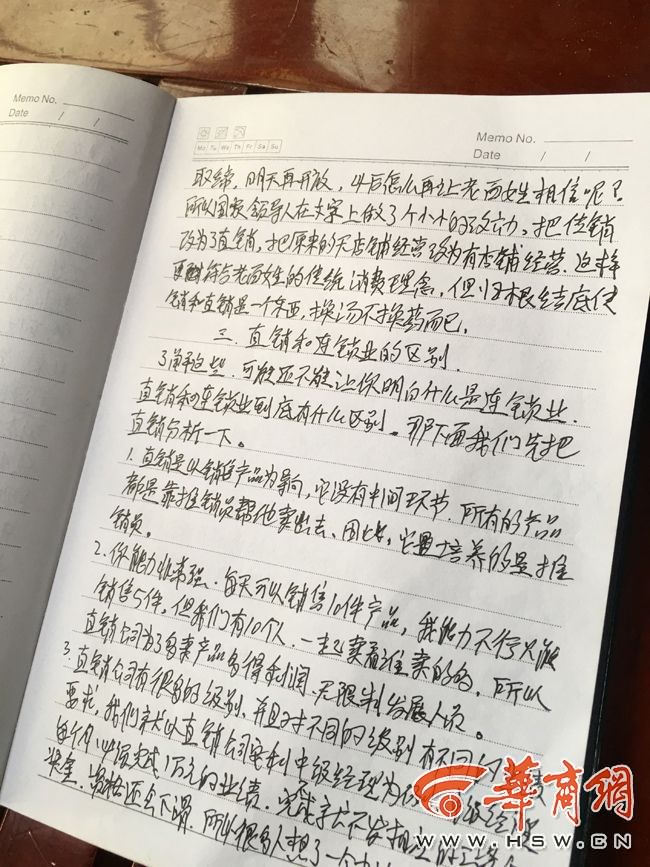 Memo No.
Date / /
Memo No.
Date / /
Mo Tu We Th Fr Sa Su
取缔，明天再开放，以后怎么再让老百姓相信呢？
所以国家领导人在文字上做了个小小的改动，把传销
改为了直销，把原来的无店铺经营改为有店铺经营．这样
符合老百姓的传统消费理念，但归根结底传
销和直销是一个东西，换汤不换药而已。
三．直销和连锁业的区别．
了解这些．可能还不能让你明白什么是连锁业．
直销和连锁业到底有什么区别。那下面我们先把
直销分析一下。
1．直销是以销售产品为导向，它没有中间环节．所有的产品
都是靠推销员帮他卖出去、因此，它要培养的是推
销员。
2．你能力非常强．每天可以销售10件产品，我能力不行只能
销售5件，但我们有10个人．一起卖看谁卖的多．所以
直销公司为了多卖产品多得利润．无限制发展人员。
3．直销公司有很多的级别、并且对不同的级别有不同的
要求，我们来以直销公司 中级经理为
每个月必须完成1万元的业绩．完成
奖金．资格还会下滑．所以很多人想了一个
华商网
WWW.HSW.CN